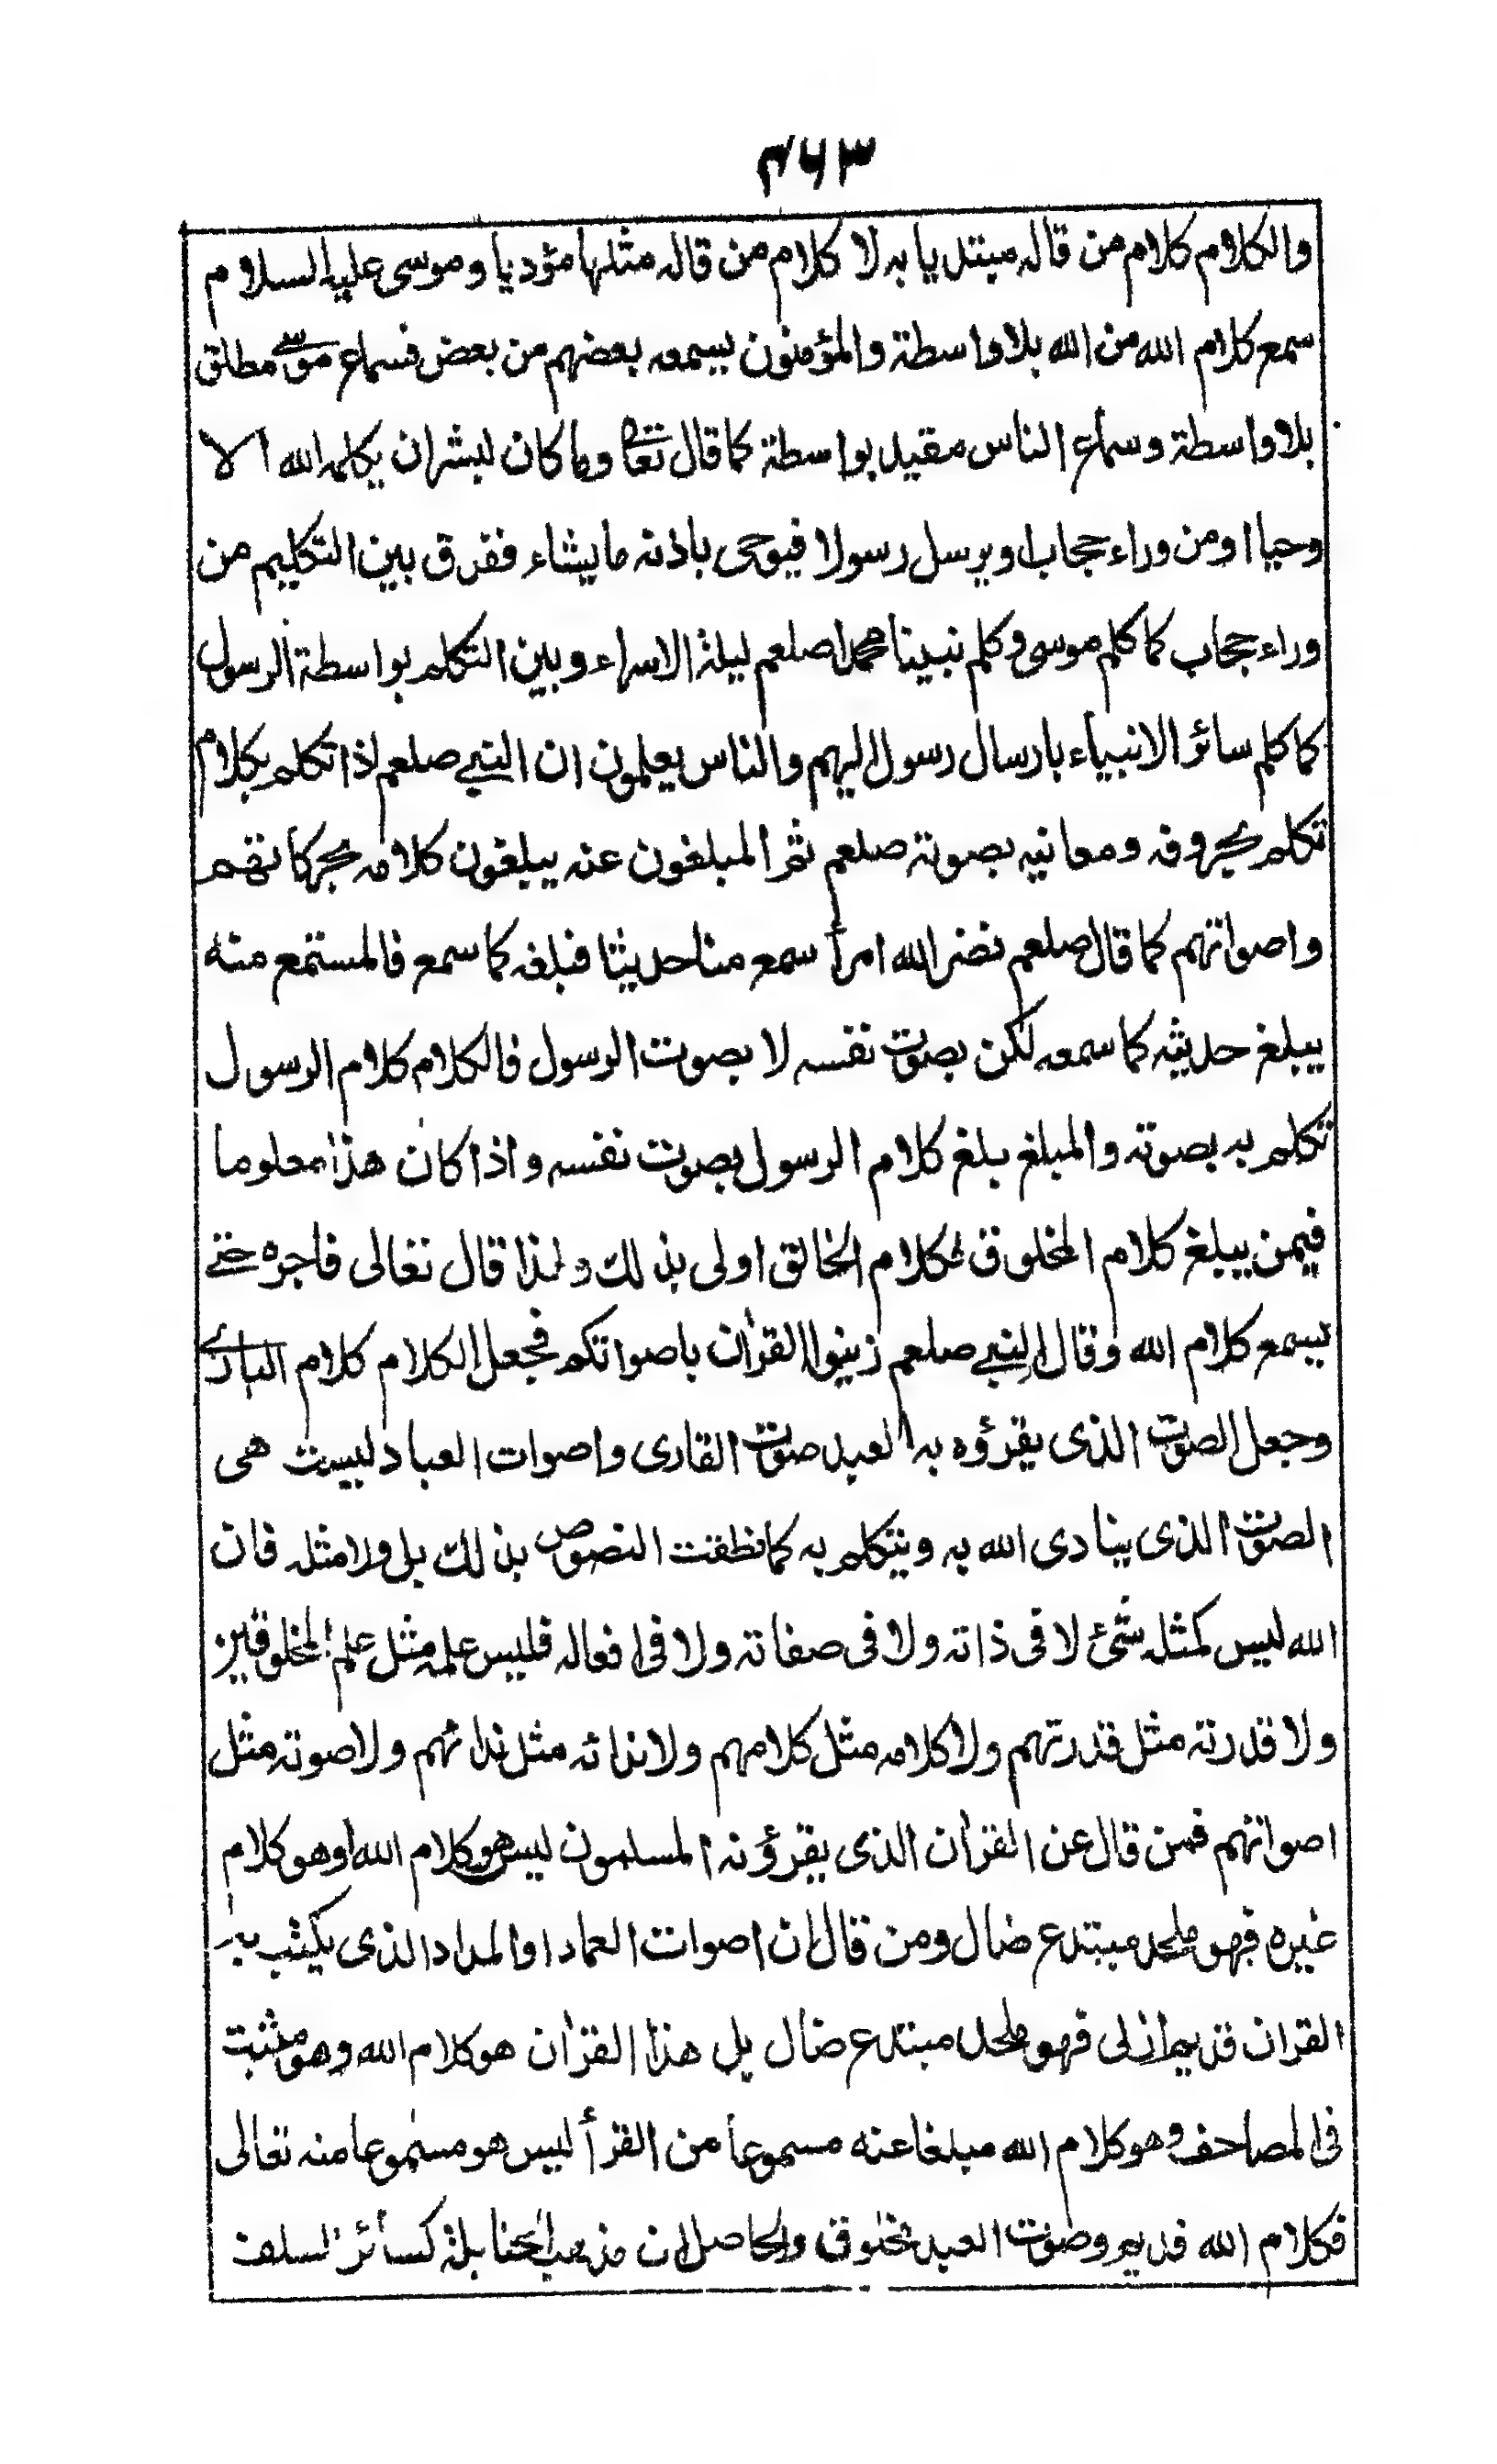 ٣٦٣
والكلام كلام من قاله مبتديا به لا كلام من قاله مثلها مؤديا وموسى عليه السلام
سمع كلام الله من الله بلا واسطة والمؤمنون يسمعه بعضهم من بعض فسماع موسى مطلق
بلا واسطة وسماع الناس مقيد بواسطة كما قال تعا وما كان لبشر ان يكلمه الله الا
وحيا او من وراء حجاب او يرسل رسولا فيوحى باذنه ما يشاء ففرق بين التكليم من
وراء حجاب كما كلم موسى وكلم نبينا محمدا صلعم ليلة الاسراء وبين التكلم بواسطة الرسول
كما كلم سائر الانبياء بارسال رسول اليهم والناس يعلمون ان النبي صلعم اذا تكلم بكلام
تكلم بحروفه ومعانيه بصوته صلعم ثم المبلغون عنه يبلغون كلامه بحركاتهم
واصواتهم كما قال صلعم نضر الله امرأ سمع منا حديثا فبلغه كما سمع فالمستمع منه
يبلغ حديثه كما سمعه لكن بصوت نفسه لا بصوت الرسول فالكلام كلام الرسول
تكلم به بصوته والمبلغ بلغ كلام الرسول بصوت نفسه واذا كان هذا معلوما
فيمن يبلغ كلام المخلوق فكلام الخالق اولى بذلك ولذا قال تعالى فاجره حتے
يسمع كلام الله وقال النبي صلعم زينوا القرأن باصواتكم فجعل الكلام كلام البارے
وجعل الصوت الذى يقرؤه به العبد صوت القارى واصوات العباد ليست هى
الصوت الذى ينادى الله به ويتكلم به كما نطقت النصوص بذلك بل ولا مثله فان
الله ليس كمثله شئ لا فى ذاته ولا فى صفاته ولا فى افعاله فليس علمه مثل علم المخلوقين
ولا قدرته مثل قدرتهم ولا كلامه مثل كلامهم ولا ندائه مثل ندائهم ولا صوته مثل
اصواتهم فمن قال عن القرأن الذى يقرؤنه المسلمون ليس هو كلام الله او هو كلام
غيره فهو ملحد مبتدع ضال ومن قال ان اصوات العباد او المداد الذى يكتب به
القران قديم ازلى فهو ملحد مبتدع ضال بل هذا القرأن هو كلام الله وهو مثبت
فى المصاحف وهو كلام الله مبلغا عنه مسموعا من القرأ ليس هو مسموعا منه تعالى
فكلام الله قديم وصوت العبد مخلوق والحاصل ان مذهب الحنابلة كسائر السلف